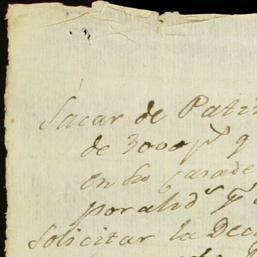 Sacar de Pati
de 3000 p.s q
en su Casa de
por
solicitar la Dec